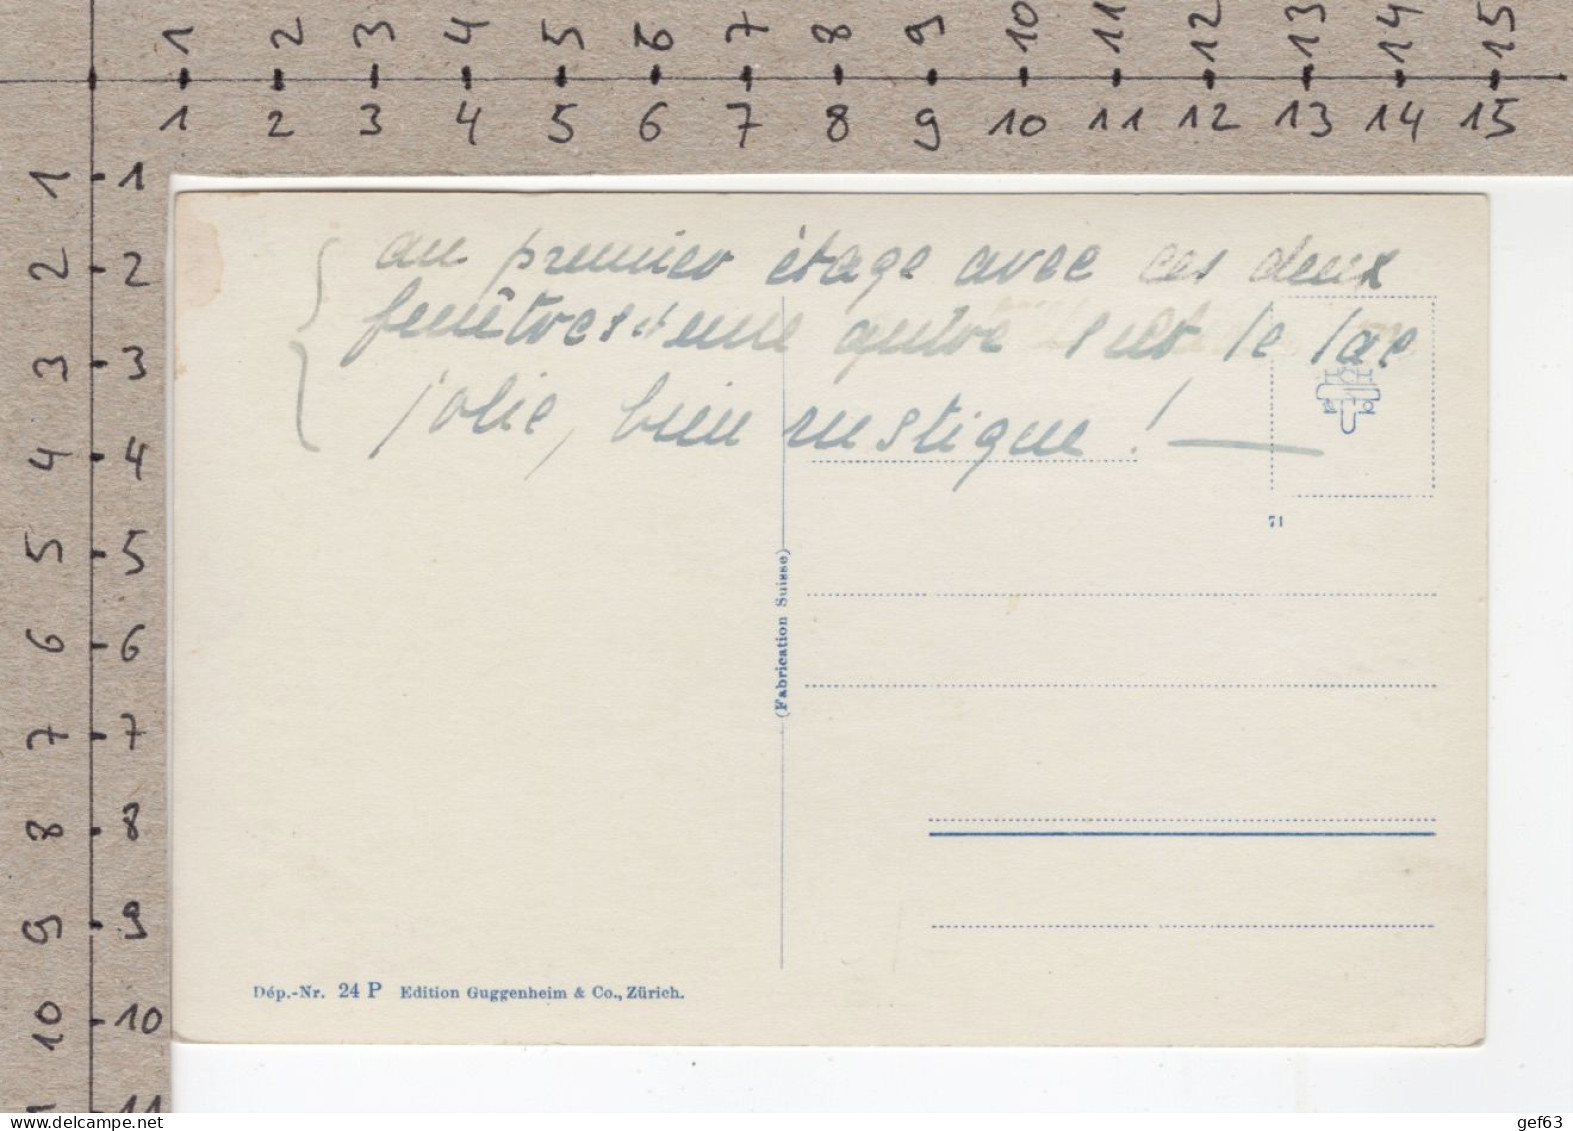 1 2 3 4 5 6 7 8 9 10 11 12 13 14 15
1 2 3 4 5 6 7 8 9 10 11 12 13 14 15
1 1
2 2
3 3
4 4
5 5
6 6
7 7
8 8
9 9
10 10
11
au premier étage avec ces deux
fenêtres et une autre sur le lac
jolie, bien rustique ! —
71
(Fabrication Suisse)
Dép.-Nr. 24 P Edition Guggenheim & Co., Zürich.
www.delcampe.net
gef63